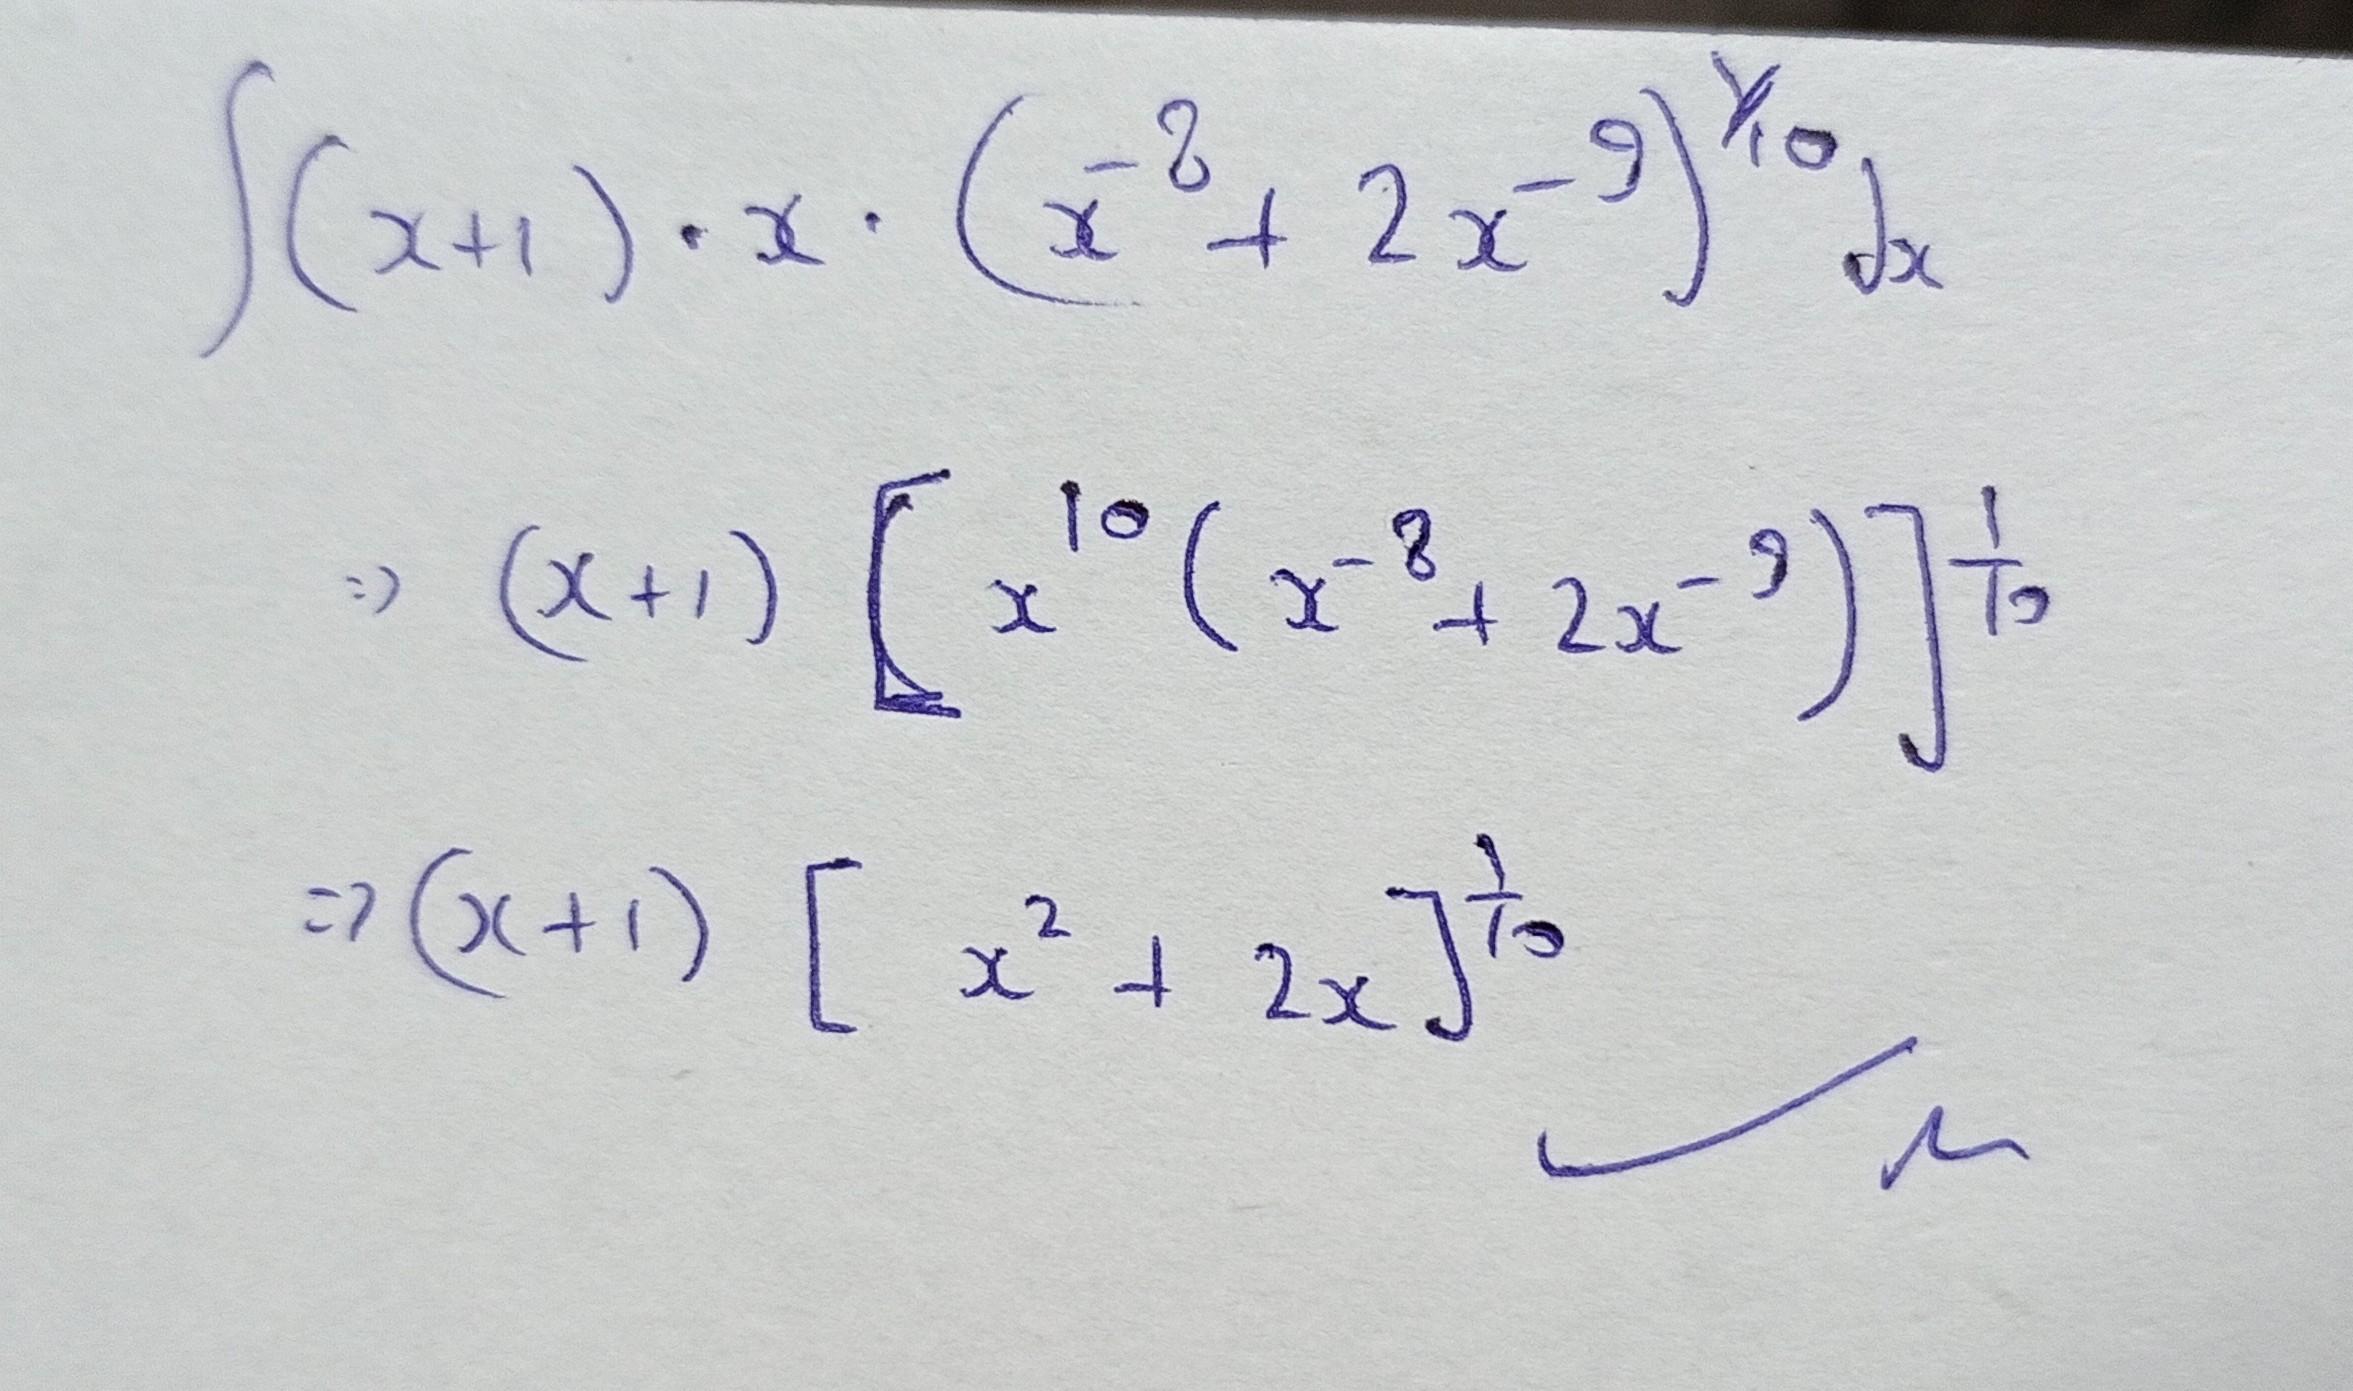 ∫(x+1)·x·(x⁻⁸+2x⁻⁹)^1/10 dx
⇒ (x+1) [x¹⁰(x⁻⁸+2x⁻⁹)]^1/10
⇒ (x+1) [x²+2x]^1/10